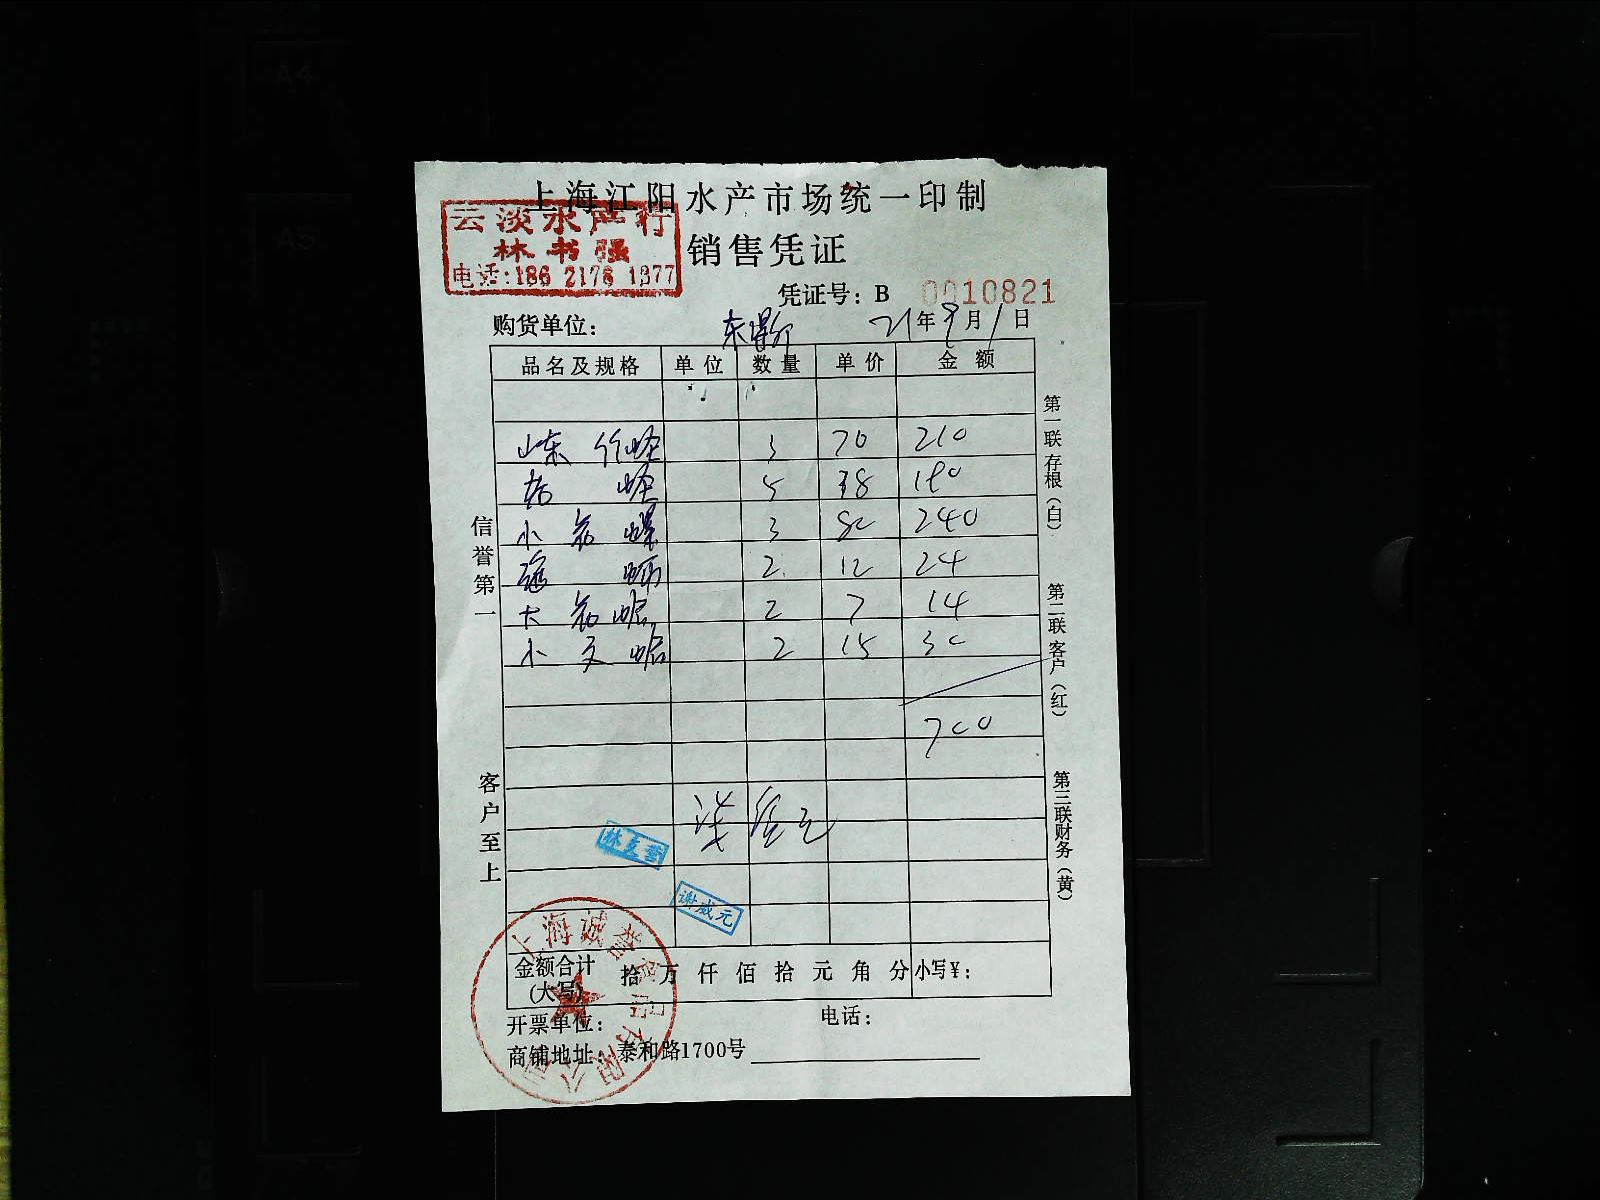 上海江阳水产市场统一印制
云淡水产行
林书强
电话:186 2178 1377
销售凭证
凭证号: B 0010821
购货单位: 21年9月1日
品名及规格 单位 数量 单价 金额
山东 竹蛏 3 70 210
蛏 5 38 180
小 螺 3 80 240
2 12 24
大 蛤 2 7 14
小 文 蛤 2 15 30
700
信誉第一
客户至上
第一联存根(白)
第二联客户(红)
第三联财务(黄)
谢成元
金额合计(大写) 拾 万 仟 佰 拾 元 角 分 小写¥:
开票单位: 电话:
商铺地址: 泰和路1700号